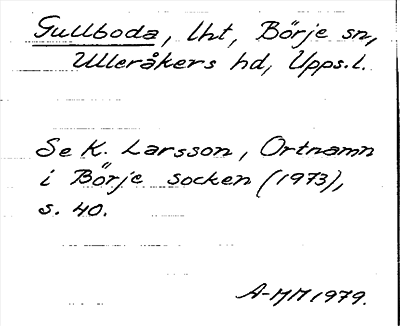 Gullboda, lht, Börje sn,
Ulleråkers hd, Upps.l.
Se K. Larsson, Ortnamn
i Börje socken (1973),
s. 40.
A-MM 1979.